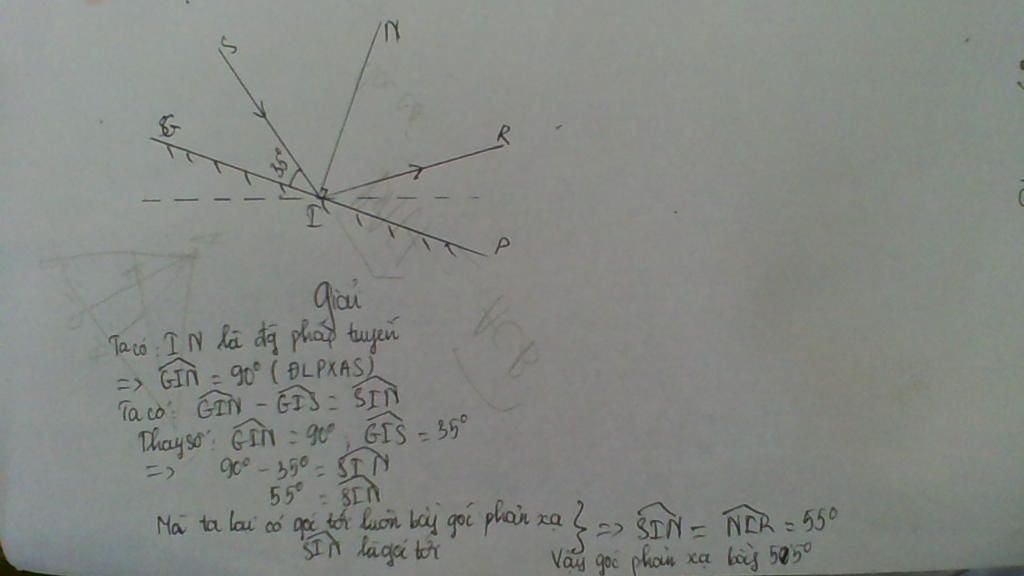 S
N
G
35°
R
I
P
Giải
Ta có: IN là đg pháp tuyến
=> GIN = 90° (ĐLPXAS)
Ta có: GIN - GIS = SIN
Thay số: GIN = 90°, GIS = 35°
=> 90° - 35° = SIN
55° = SIN
Mà ta lại có góc tới luôn bằg góc phản xạ } => SIN = NIR = 55°
SIN là góc tới
Vậy góc phản xạ bằg 55°